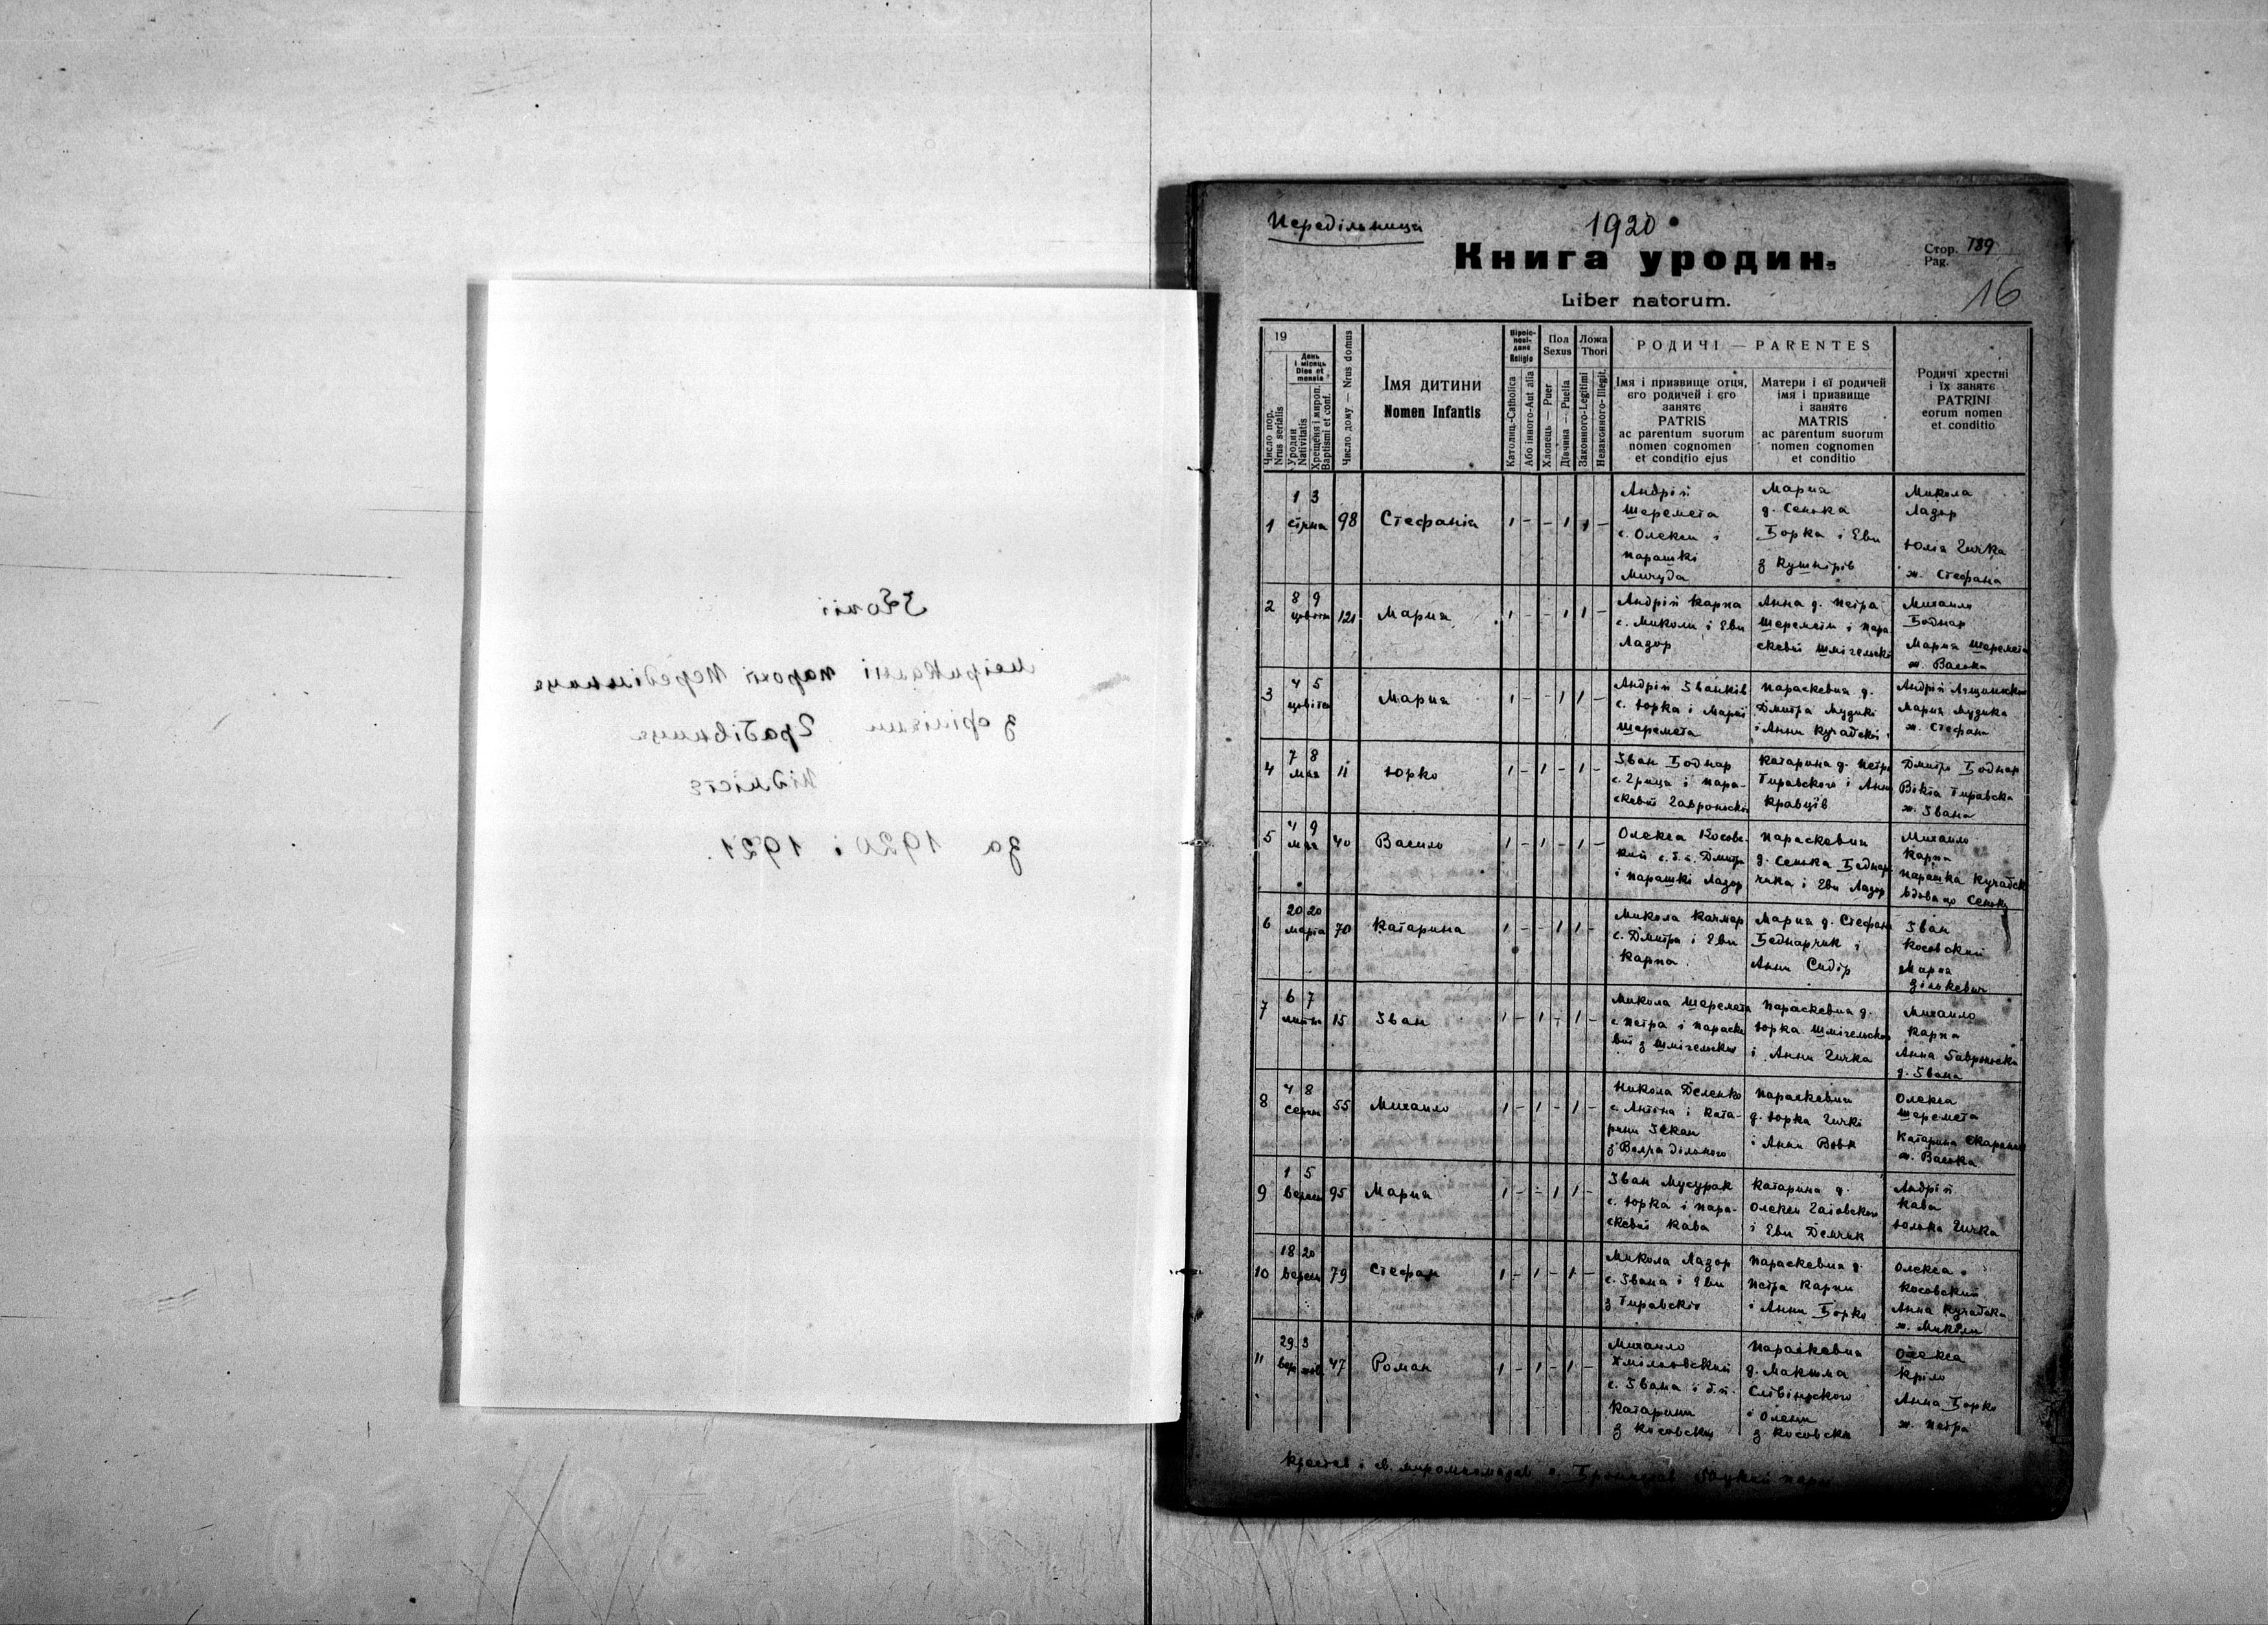 Передільниця
1920
Книга уродин.
Стор. 189
Pag.
16
Liber natorum.
19
День і місяць
Dies et mensis
Число пор.
Nrus serialis
Уродин
Nativitatis
Хрещеня і миропом.
Baptismi et conf.
Число дому — Nrus domus
Імя дитини
Nomen Infantis
Religio
Католиц.-Catholica
Або інного-Aut alia
Пол
Sexus
Хлопець — Puer
Дівчина — Puella
Ложа
Thori
Законного-Legitimi
Незаконного-Illegit.
РОДИЧІ — PARENTES
Імя і призвище отця,
єго родичей і єго
занятє
PATRIS
ac parentum suorum
nomen cognomen
et conditio ejus
Матери і єї родичей
імя і призвище
і занятє
MATRIS
ac parentum suorum
nomen cognomen
et conditio
Родичі хрестні
і їх занятє
PATRINI
eorum nomen
et conditio
1 1 3 стічня 98 Стефанія 1 - - 1 1 -
Андрій
Шеремета
с. Олекси і
Парашкі
Мицуда
Мария
д. Сенька
Борка і Еви
з Кушнірів
Микола
Лазор
Юлія Гичка
ж. Стефана
2 8 9 цвітня 121 Мария 1 - - 1 1 -
Андрій Карпа
с. Миколи і Еви
Лазор
Анна д. Петра
Шеремети і Пара
скевії Шмігельскі
Михайло
Боднар
Мария Шеремета
ж. Васька
3 4 5 цвітня Мария 1 - - 1 1 -
Андрій Іванків
с. Юрка і Мариї
Шеремета
Параскевия д.
Дмитра Мудикі
і Анни Кучабскої
Андрій
Мария Мудика
ж. Стефана
4 7 8 мая 11 Юрко 1 - 1 - 1 -
Іван Боднар
с. Гриця і Пара-
скевії Гавроньскі
Катарина д. Петра
Тиравского і Анни
Кравців
Дмитро Боднар
Вікта Тиравска
ж. Івана
5 4 9 мая 40 Василь 1 - 1 - 1 -
Олекса Косовс-
кий с. Дмитра
і Парашкі Лазор
Параскевия
д. Сенька Беднар
чика і Еви Лазор
Михайло
Карпа
Парашка Кучабск
вдова по Сеньку
6 20 20 марта 70 Катарина 1 - - 1 1 -
Микола Качмар
с. Дмитра і Еви
Карпа
Мария д. Стефана
Беднарчик і
Анни Сидір
Іван
Косовский
Мария
Зількевич
7 6 7 липня 15 Іван 1 - 1 - 1 -
Микола Шеремета
с. Петра і Параске
вії з Шмігельских
Параскевия д.
Юрка Шмігельского
і Анни Гичка
Михайло
Карпа
Анна Гавроньска
д. Івана
8 4 8 серпня 55 Михайло 1 - 1 - 1 -
Никола Деленко
с. Антона і Ката-
рини
Параскевия
д. Юрка Гичкі
і Анни Вовк
Олекса
Шеремета
Катарина
ж. Васька
9 1 5 вересня 95 Мария 1 - - 1 1 -
Іван Мусурак
с. Юрка і Пара-
скевії Кава
Катарина д.
Олекси Гаїовского
і Еви Демчик
Андрій
Кава
Юлька Гичка
10 18 20 вересня 79 Стефан 1 - 1 - 1 -
Микола Лазор
с. Івана і Еви
з Тиравскіх
Параскевия д.
Петра Карпи
і Анни Борко
Олекса
Косовский
Анна Кучабска
ж. Миколи
11 29 3 вер жов 47 Роман 1 - 1 - 1 -
Михайло
Хмільовский
с. Івана і
Катарини
з Косовских
Параскевия
д. Максима
Слівіньского
і Олени
з Косовских
Олекса
Кріло
Анна Борко
ж. Петра
Крестив і
Копії
метрикальні парохії Передільниця
з філіями Грабівниця
Підмістє
за 1920 і 1921.